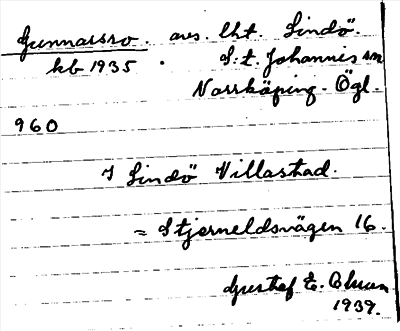 Gunnarsro. avs. lht. Lindö.
kb 1935 . S:t. Johannis sn
Norrköping. Ögl.
960
I Lindö Villastad.
= Stjerneldsvägen 16.
Gustaf E. Olsson
1939.